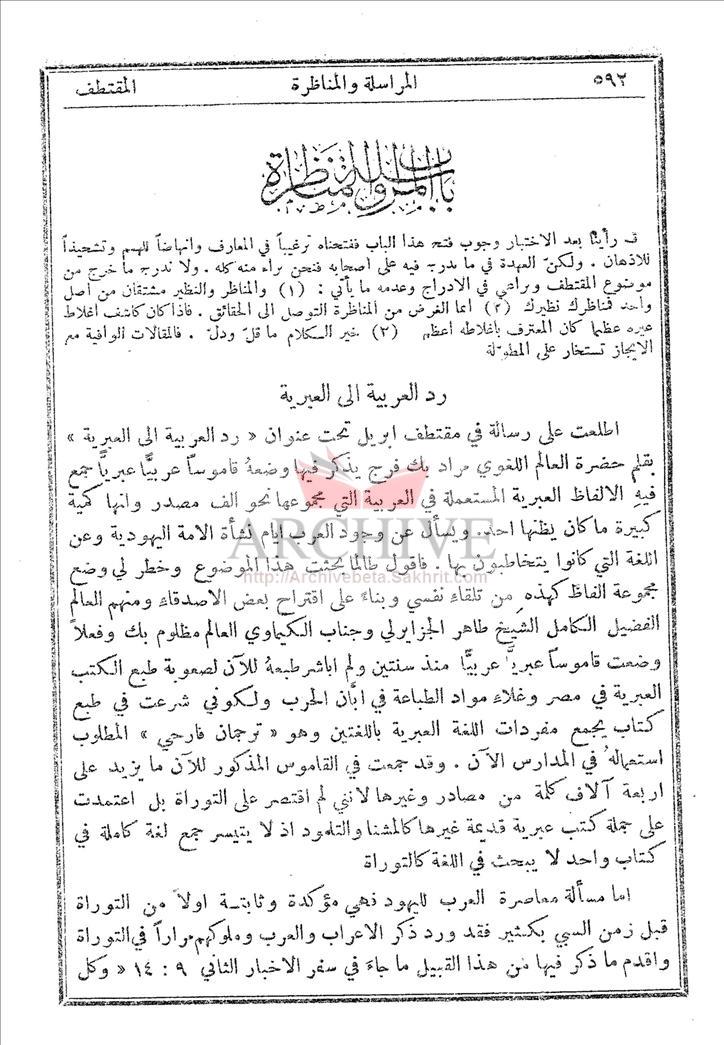 ٥٩٢ المراسلة والمناظرة المقتطف
باب المراسلة والمناظرة
قد رأينا بعد الاختبار وجوب فتح هذا الباب ففتحناه ترغيباً في المعارف وانهاضاً للهمم وتشحيذاً
للاذهان . ولكنّ العهدة في ما يدرج فيه على اصحابه فنحن براء منه كله . ولا ندرج ما خرج عن
موضوع المقتطف ونراعي في الادراج وعدمه ما يأتي : (١) والمناظر والنظير مشتقان من اصل
واحد فمناظرك نظيرك (٢) انما الغرض من المناظرة التوصل الى الحقائق . فاذا كان كاشف اغلاط
غيره عظيماً كان المعترف باغلاطه اعظم (٢) خير الكلام ما قلّ ودلّ . فالمقالات الوافية مع
الايجاز تستخار على المطوّلة
رد العربية الى العبرية
اطلعت على رسالة في مقتطف ابريل تحت عنوان « رد العربية الى العبرية »
بقلم حضرة العالم اللغوي مراد بك فرج يذكر فيها وضعهُ قاموساً عربيًّا عبريًّا جمع
فيهِ الالفاظ العبرية المستعملة في العربية التي مجموعها نحو الف مصدر وانها كمية
كبيرة ما كان يظنها احد. ويسأل عن وجود العرب ايام نشأة الامة اليهودية وعن
اللغة التي كانوا يتخاطبون بها . فاقول طالما بحثت هذا الموضوع وخطر لي وضع
مجموعة الفاظ كهذه من تلقاءِ نفسي وبناءً على اقتراح بعض الاصدقاءِ ومنهم العالم
الفضيل الكامل الشيخ طاهر الجزايرلي وجناب الكيماوي العالم مظلوم بك وفعلاً
وضعت قاموساً عبريًّا عربيًّا منذ سنتين ولم اباشر طبعهُ للآن لصعوبة طبع الكتب
العبرية في مصر وغلاءِ مواد الطباعة في ابَّان الحرب ولكوني شرعت في طبع
كتاب يجمع مفردات اللغة العبرية باللغتين وهو « ترجمان فارحي » المطلوب
استعمالهُ في المدارس الآن . وقد جمعت في القاموس المذكور للآن ما يزيد على
اربعة آلاف كلمة من مصادر وغيرها لانني لم اقتصر على التوراة بل اعتمدت
على جملة كتب عبرية قديمة غيرها كالمشنا والتلمود اذ لا يتيسر جمع لغة كاملة في
كتاب واحد لا يبحث في اللغة كالتوراة
اما مسألة معاصرة العرب لليهود فهي مؤكدة وثابتة اولاً من التوراة
قبل زمن السبي بكثير فقد ورد ذكر الاعراب والعرب وملوكهم مراراً في التوراة
واقدم ما ذكر فيها من هذا القبيل ما جاءَ في سفر الاخبار الثاني ٩ : ١٤ « وكل
ARCHIVE
http://Archivebeta.Sakhrit.com